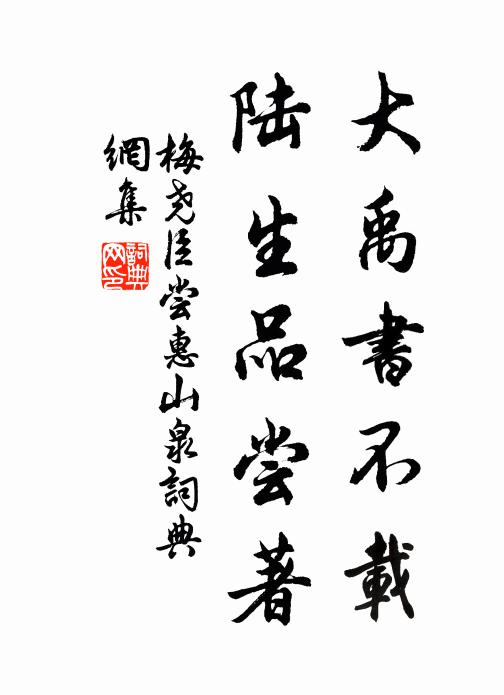 大禹書不載
陆生品尝著
梅尧臣尝惠山泉詞典
網集
詞典
网印